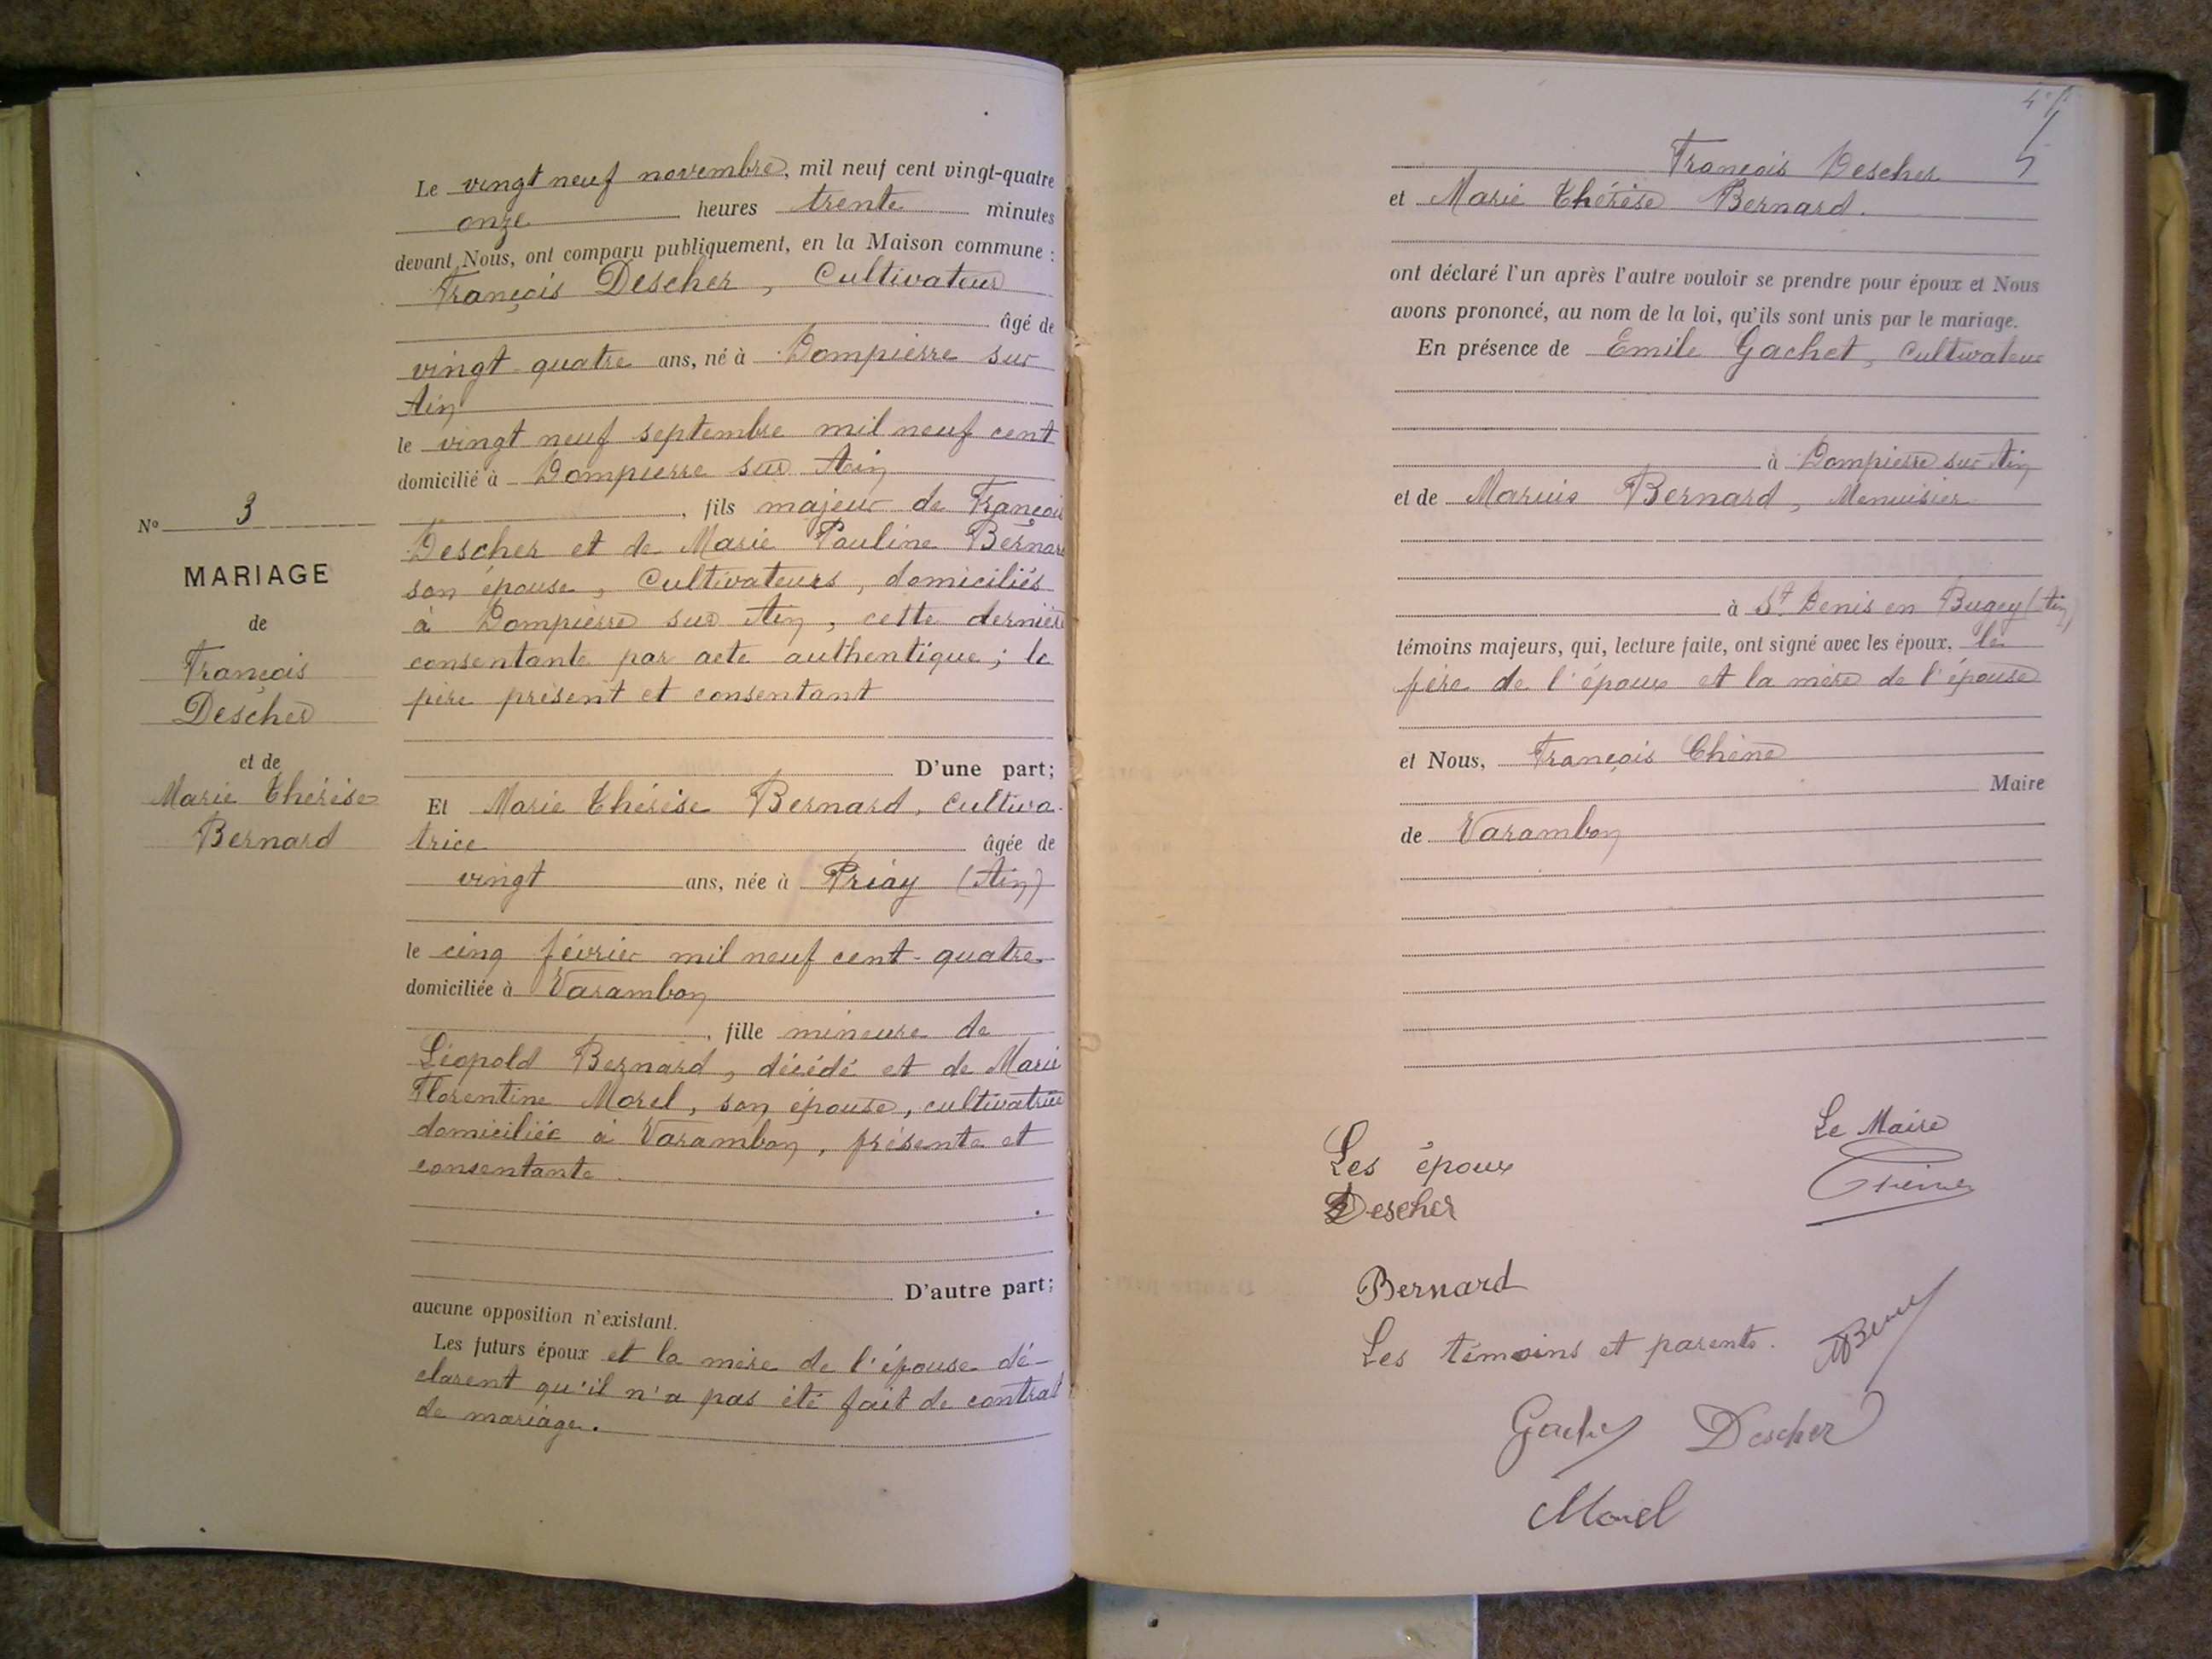 N° 3
MARIAGE
de
François
Descher
et de
Marie Thérèse
Bernard
Le vingt neuf novembre, mil neuf cent vingt-quatre
onze heures trente minutes
devant Nous, ont comparu publiquement, en la Maison commune :
François Descher, Cultivateur
âgé de
vingt-quatre ans, né à Dompierre sur
Ain
le vingt neuf septembre mil neuf cent
domicilié à Dompierre sur Ain
, fils majeur de François
Descher et de Marie Pauline Bernard
son épouse, Cultivateurs, domiciliés
à Dompierre sur Ain, cette dernière
consentante par acte authentique ; le
père présent et consentant
D'une part;
Et Marie Thérèse Bernard, Cultiva-
trice âgée de
vingt ans, née à Priay (Ain)
le cinq février mil neuf cent-quatre
domiciliée à Varambon
, fille mineure de
Léopold Bernard, décédé et de Marie
Florentine Morel, son épouse, cultivatrice
domiciliée à Varambon, présente et
consentante.
D'autre part;
aucune opposition n'existant.
Les futurs époux et la mère de l'épouse dé-
clarent qu'il n'a pas été fait de contrat
de mariage.
François Descher
et Marie Thérèse Bernard.
ont déclaré l'un après l'autre vouloir se prendre pour époux et Nous
avons prononcé, au nom de la loi, qu'ils sont unis par le mariage.
En présence de Emile Gachet, Cultivateur
à Dompierre sur Ain
et de Marius Bernard, Menuisier
à St Denis en Bugey (Ain)
témoins majeurs, qui, lecture faite, ont signé avec les époux, le
père de l'époux et la mère de l'épouse
et Nous, François Chêne
Maire
de Varambon
Les époux
Descher
Le Maire
Chêne
Bernard
Les témoins et parents.
Descher
Morel